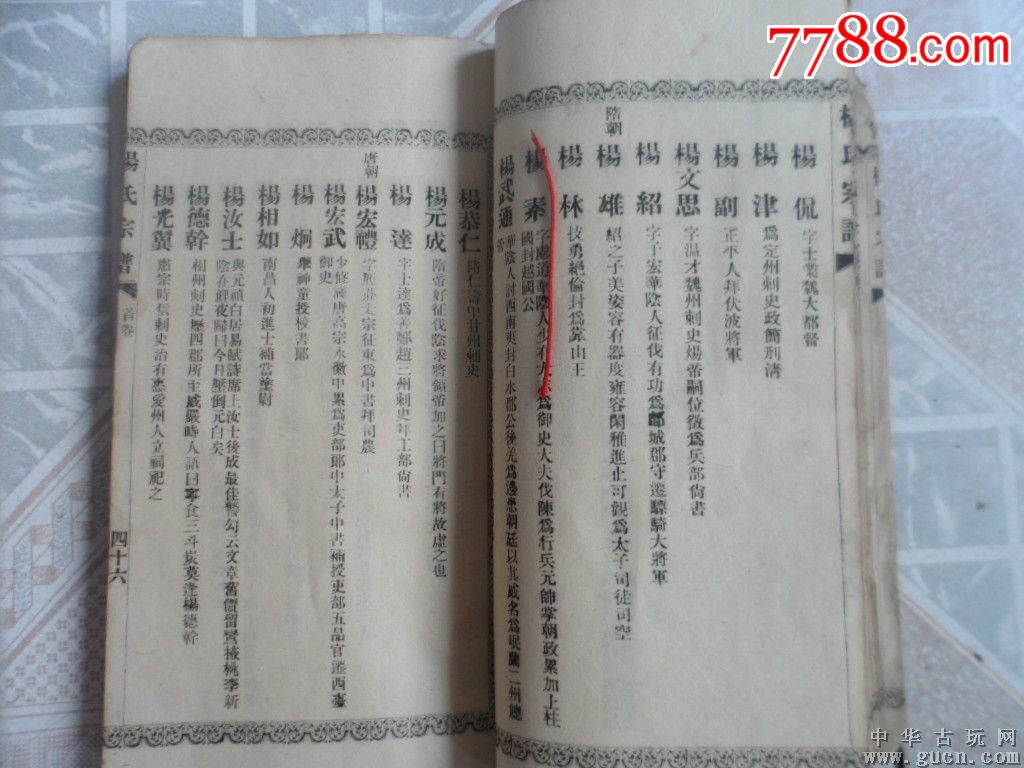 7788.com
楊侃 字士業魏大都督
楊津 為定州刺史政簡刑清
楊副 正平人拜伏波將軍
楊文思 字溫才魏州刺史煬帝嗣位徵為兵部尚書
楊紹 字子宏華陰人征伐有功為鄜城郡守遷驃騎大將軍
楊雄 紹之子美姿容有器度雍容閑雅進止可觀為太子司徒司空
隋朝
楊林 技勇絕倫封為靠山王
楊素 字處道華陰人少有大志為御史大夫伐陳為行兵元帥掌朝政累加上柱
國封越國公
楊武通 華陰人討西南夷封白水郡公後羌為邊患朝廷以其威名為岷蘭二州總
管
楊恭仁 隋仁壽中甘州刺史
楊元成 隋帝好征伐陰求將領帝加之曰將門有將故虛之也
楊達 字士達為善鄯趙三州刺史年工部尚書
唐朝
楊宏禮 宗征東為中書拜司農
楊宏武 少修謹唐高宗永徽中累為吏部郎中太子中書補授吏部五品官遷西臺
御史
楊炯 舉神童授校書郎
楊相如 南昌人初進士補當塗尉
楊汝士 與元稹白居易賦詩席上汝士後成最佳警句云文章舊價留鸞掖桃李新
陰在鯉夜歸曰今日壓倒元白矣
楊德幹 相州刺史歷四郡所主威嚴時人語曰寧食三斗炭莫逢楊德幹
楊光翼 肅宗時信刺史治有惠愛州人立祠祀之
楊氏宗譜 首卷 四十六
中华古玩网
www.gucn.com